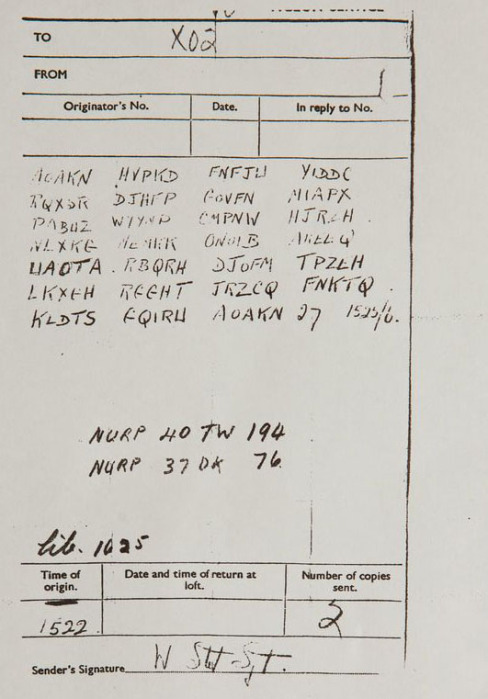 TO X02
FROM 1
Originator's No. Date. In reply to No.
AOAKN HVPKD FNFJU YIDDC
RQXSR DJHFP GOVFN MIAPX
PABUZ WYYNP CMPNW HJRZH
NLXKG MEMKK ONOIB AKEEQ
UAOTA RBQRH DJOFM TPZEH
LKXGH RGGHT JRZCQ FNKTQ
KLDTS GQIRU AOAKN 27 1525/6.
NURP 40 TW 194
NURP 37 DK 76.
lib. 1625
Time of origin. Date and time of return at loft. Number of copies sent.
1522 2
Sender's Signature W Sjt.